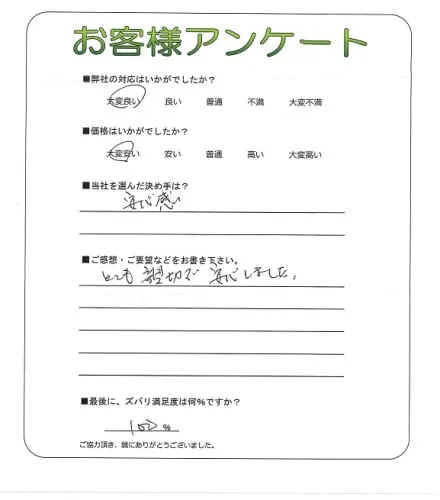 お客様アンケート
■弊社の対応はいかがでしたか？
大変良い 良い 普通 不満 大変不満
■価格はいかがでしたか？
大変安い 安い 普通 高い 大変高い
■当社を選んだ決め手は？
安心感
■ご感想・ご要望などをお書き下さい。
とても親切で安心しました。
■最後に、ズバリ満足度は何%ですか？
100%
ご協力頂き、誠にありがとうございました。